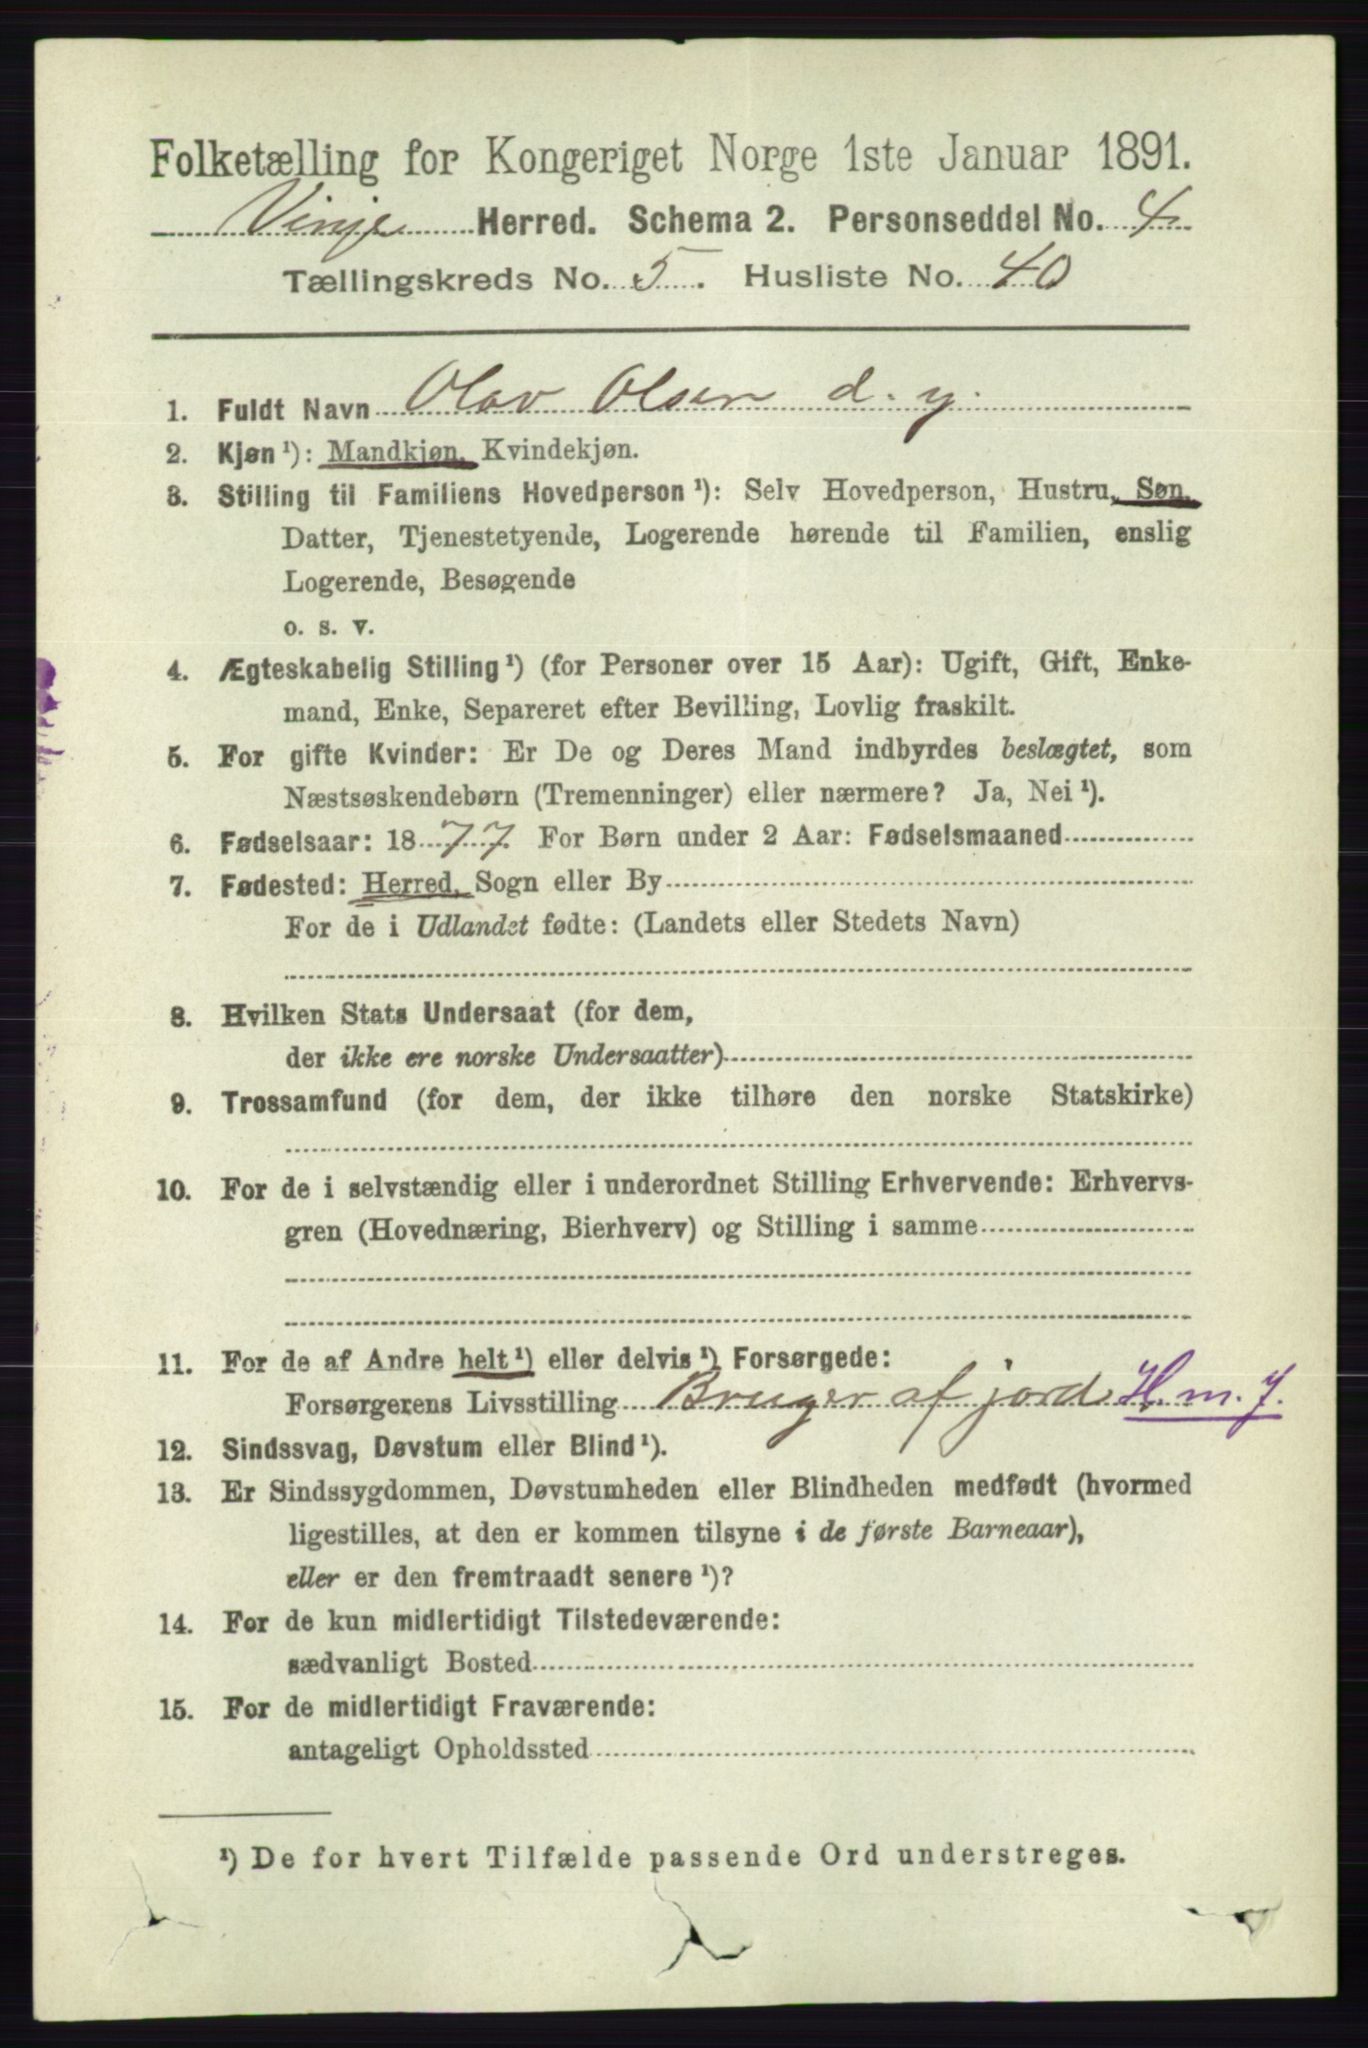 Folketælling for Kongeriget Norge 1ste Januar 1891.
Vinje Herred. Schema 2. Personseddel No. 4
Tællingskreds No. 5. Husliste No. 40
1. Fuldt Navn Olav Olsen d. y.
2. Kjøn¹): Mandkjøn, Kvindekjøn.
3. Stilling til Familiens Hovedperson¹): Selv Hovedperson, Hustru, Søn,
Datter, Tjenestetyende, Logerende hørende til Familien, enslig
Logerende, Besøgende
o. s. v.
4. Ægteskabelig Stilling¹) (for Personer over 15 Aar): Ugift, Gift, Enke-
mand, Enke, Separeret efter Bevilling, Lovlig fraskilt.
5. For gifte Kvinder: Er De og Deres Mand indbyrdes beslægtet, som
Næstsøskendebørn (Tremenninger) eller nærmere? Ja, Nei¹).
6. Fødselsaar: 1877. For Børn under 2 Aar: Fødselsmaaned
7. Fødested: Herred, Sogn eller By
For de i Udlandet fødte: (Landets eller Stedets Navn)
8. Hvilken Stats Undersaat (for dem,
der ikke ere norske Undersaatter)
9. Trossamfund (for dem, der ikke tilhøre den norske Statskirke)
10. For de i selvstændig eller i underordnet Stilling Erhvervende: Erhvervs-
gren (Hovednæring, Bierhverv) og Stilling i samme
11. For de af Andre helt¹) eller delvis¹) Forsørgede:
Forsørgerens Livsstilling Bruger af jord H. m. J.
12. Sindssvag, Døvstum eller Blind¹).
13. Er Sindssygdommen, Døvstumheden eller Blindheden medfødt (hvormed
ligestilles, at den er kommen tilsyne i de første Barneaar),
eller er den fremtraadt senere¹)?
14. For de kun midlertidigt Tilstedeværende:
sædvanligt Bosted
15. For de midlertidigt Fraværende:
antageligt Opholdssted
¹) De for hvert Tilfælde passende Ord understreges.